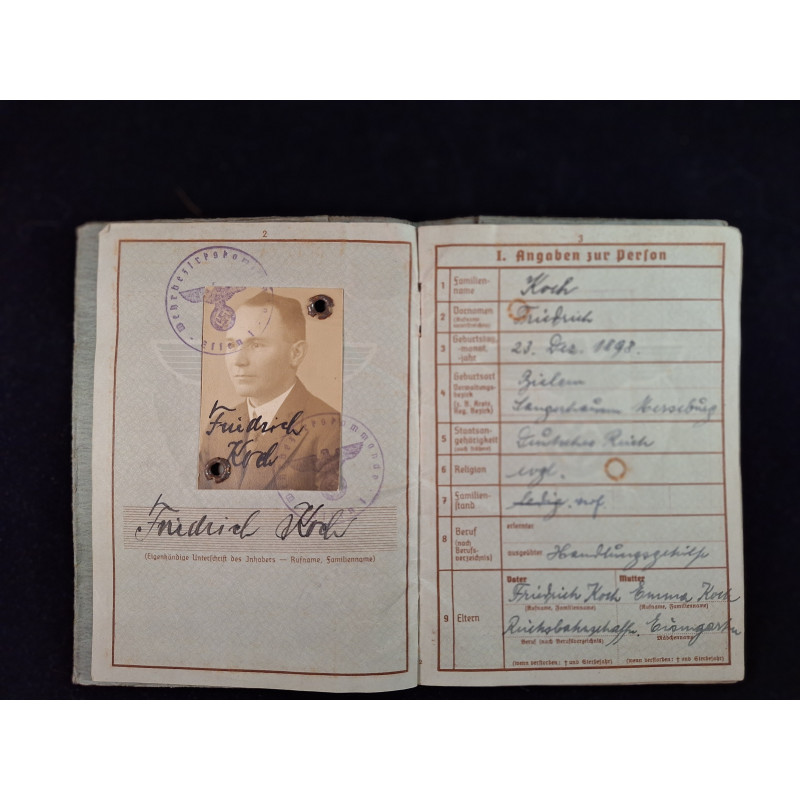 2
Wehrbezirkskom
Friedrich
Koch
Friedrich Koch
(Eigenhändige Unterschrift des Inhabers — Rufname, Familienname)
3
I. Angaben zur Person
1 Familien-
name
Koch
2 Vornamen
(Rufname
unterstreichen)
Friedrich
3 Geburtstag,
-monat,
-jahr
23. Dez. 1898.
4 Geburtsort
Verwaltungs-
bezirk
(z. B. Kreis,
Reg. Bezirk)
Sangerhausen Merseburg
5 Staatsan-
gehörigkeit
(auch frühere)
Deutsches Reich
6 Religion
evgl.
7 Familien-
stand
Ledig.
8 Beruf
(nach
Berufs-
verzeichnis)
erlernter
ausgeübter Handlungsgehilfe
9 Eltern
Vater Mutter
Friedrich Koch Emma Koch
(Rufname, Familienname) (Rufname, Familienname)
Beruf (nach Berufsverzeichnis) Mädchenname)
(wenn verstorben: † und Sterbejahr) (wenn verstorben: † und Sterbejahr)